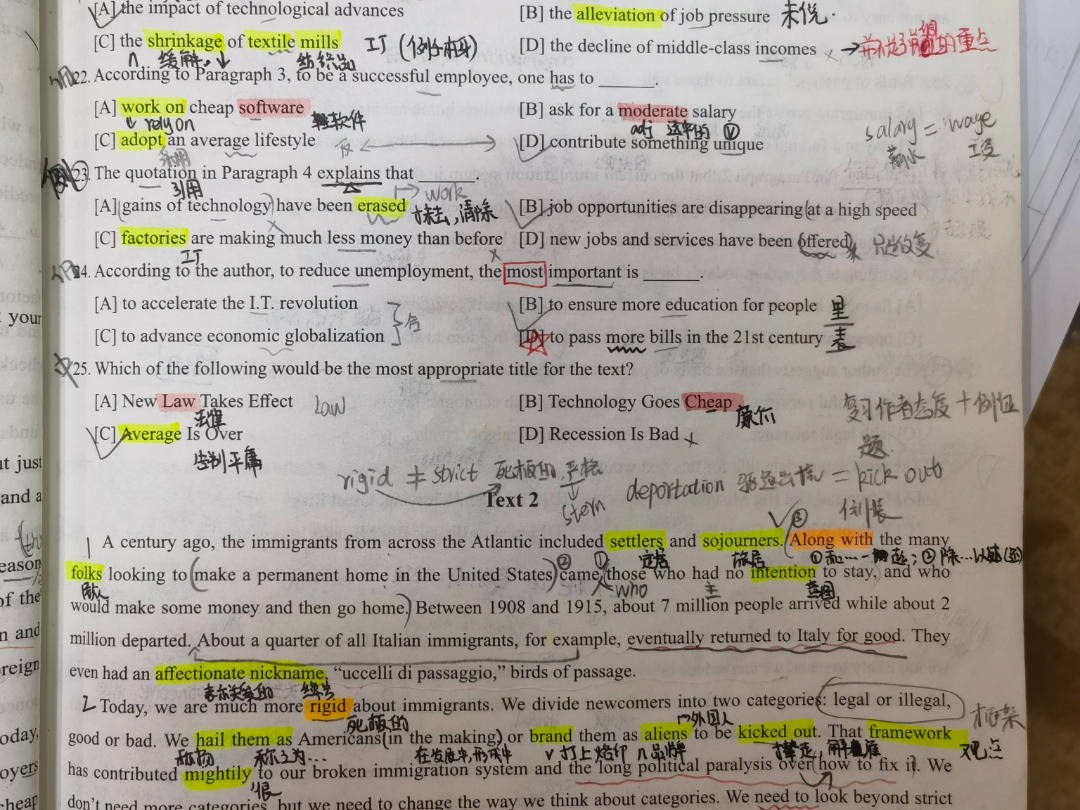 [A] the impact of technological advances
[B] the alleviation of job pressure
[C] the shrinkage of textile mills 工厂
[D] the decline of middle-class incomes
缓解 纺织品
22. According to Paragraph 3, to be a successful employee, one has to ______.
[A] work on cheap software
[B] ask for a moderate salary
rely on 软件
salary = wage
薪水 工资
[C] adopt an average lifestyle
[D] contribute something unique
采用 反
23. The quotation in Paragraph 4 explains that ______.
引用 work
[A] gains of technology have been erased 抹去,清除
[B] job opportunities are disappearing at a high speed
[C] factories are making much less money than before
[D] new jobs and services have been offered
工厂
24. According to the author, to reduce unemployment, the most important is ______.
[A] to accelerate the I.T. revolution
[B] to ensure more education for people 里
[C] to advance economic globalization
[D] to pass more bills in the 21st century 表
25. Which of the following would be the most appropriate title for the text?
[A] New Law Takes Effect Law
[B] Technology Goes Cheap
法律 廉价
复习作者态度+例证题
[C] Average Is Over
[D] Recession Is Bad
告别平庸
rigid ≠ strict 死板的,严格
stern
deportation 驱逐出境 = kick out
Text 2
倒装
A century ago, the immigrants from across the Atlantic included settlers and sojourners. Along with the many
定居 旅居
folks looking to make a permanent home in the United States came those who had no intention to stay, and who
who 主 意图
would make some money and then go home. Between 1908 and 1915, about 7 million people arrived while about 2
million departed. About a quarter of all Italian immigrants, for example, eventually returned to Italy for good. They
even had an affectionate nickname, “uccelli di passaggio,” birds of passage.
表示关爱的 绰号
2 Today, we are much more rigid about immigrants. We divide newcomers into two categories: legal or illegal,
死板的 外国人 框架
good or bad. We hail them as Americans (in the making) or brand them as aliens to be kicked out. That framework
称为... 在发展中,形成中 打上烙印 品牌 观点
has contributed mightily to our broken immigration system and the long political paralysis over how to fix it. We
很
don't need more categories, but we need to change the way we think about categories. We need to look beyond strict